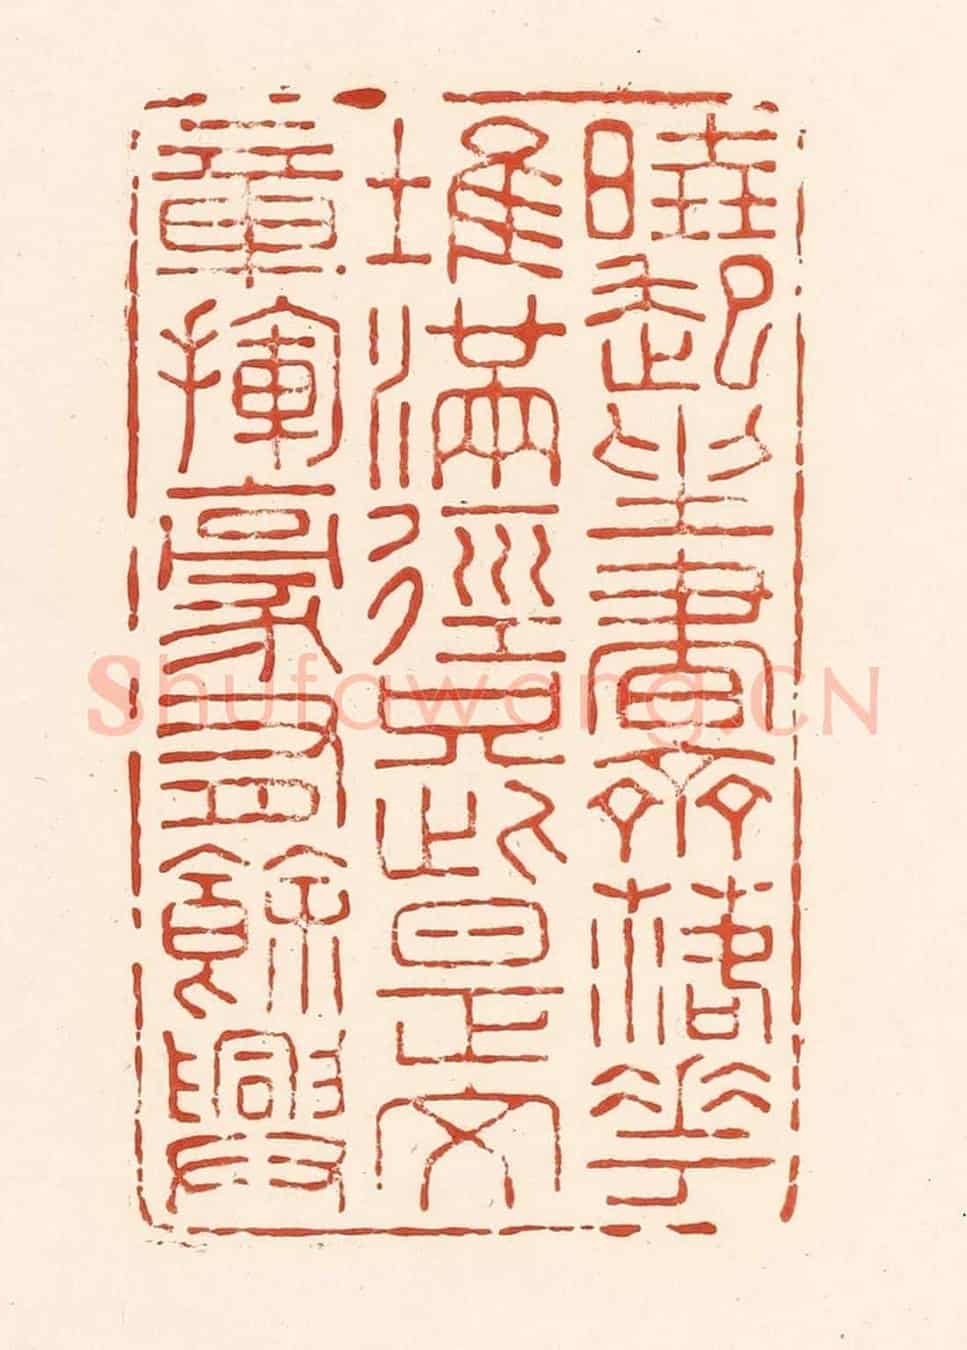 曉起坐書齋落華
堆滿徑只此是文
章揮豪有餘興
Shufawang.CN